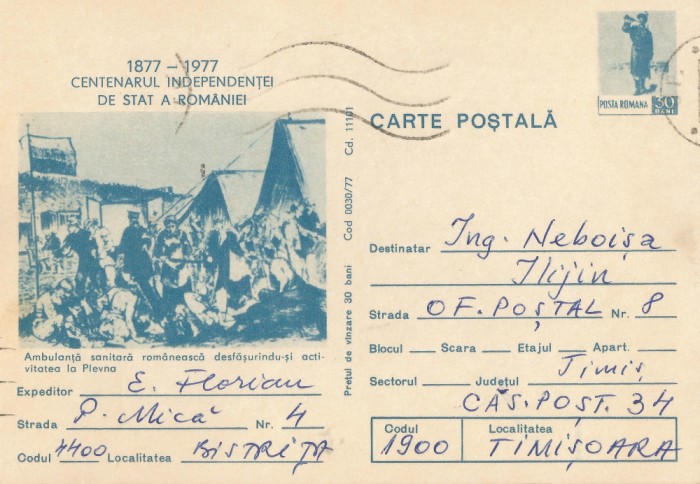 1877 – 1977
CENTENARUL INDEPENDENȚEI
DE STAT A ROMÂNIEI
Ambulanță sanitară românească desfășurindu-și acti-
vitatea la Plevna
Expeditor E. Florian
Strada P. Mică Nr. 4
Codul 4400 Localitatea BISTRIȚA
Prețul de vînzare 30 bani Cod 0030/77 Cd. 11101
POSTA ROMANA 30 BANI
CARTE POȘTALĂ
Destinatar Ing. Neboișa
Ilijin
Strada OF. POȘTAL Nr. 8
Blocul Scara Etajul Apart.
Sectorul Județul Timiș
CĂS. POȘT. 34
Codul 1900 Localitatea TIMIȘOARA